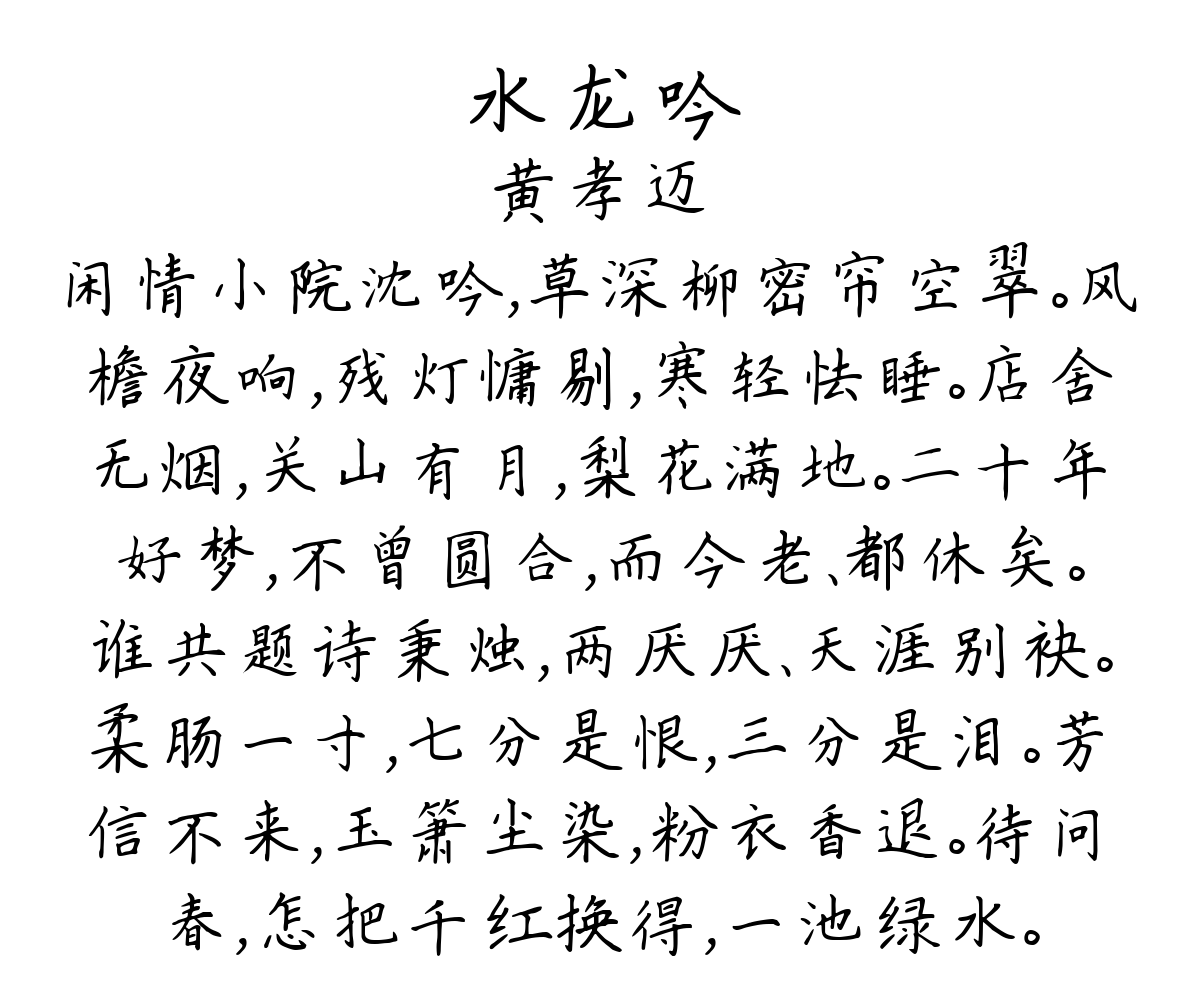 水龙吟
黄孝迈
闲情小院沈吟,草深柳密帘空翠。风
檐夜响,残灯慵剔,寒轻怯睡。店舍
无烟,关山有月,梨花满地。二十年
好梦,不曾圆合,而今老、都休矣。
谁共题诗秉烛,两厌厌、天涯别袂。
柔肠一寸,七分是恨,三分是泪。芳
信不来,玉箫尘染,粉衣香退。待问
春,怎把千红换得,一池绿水。